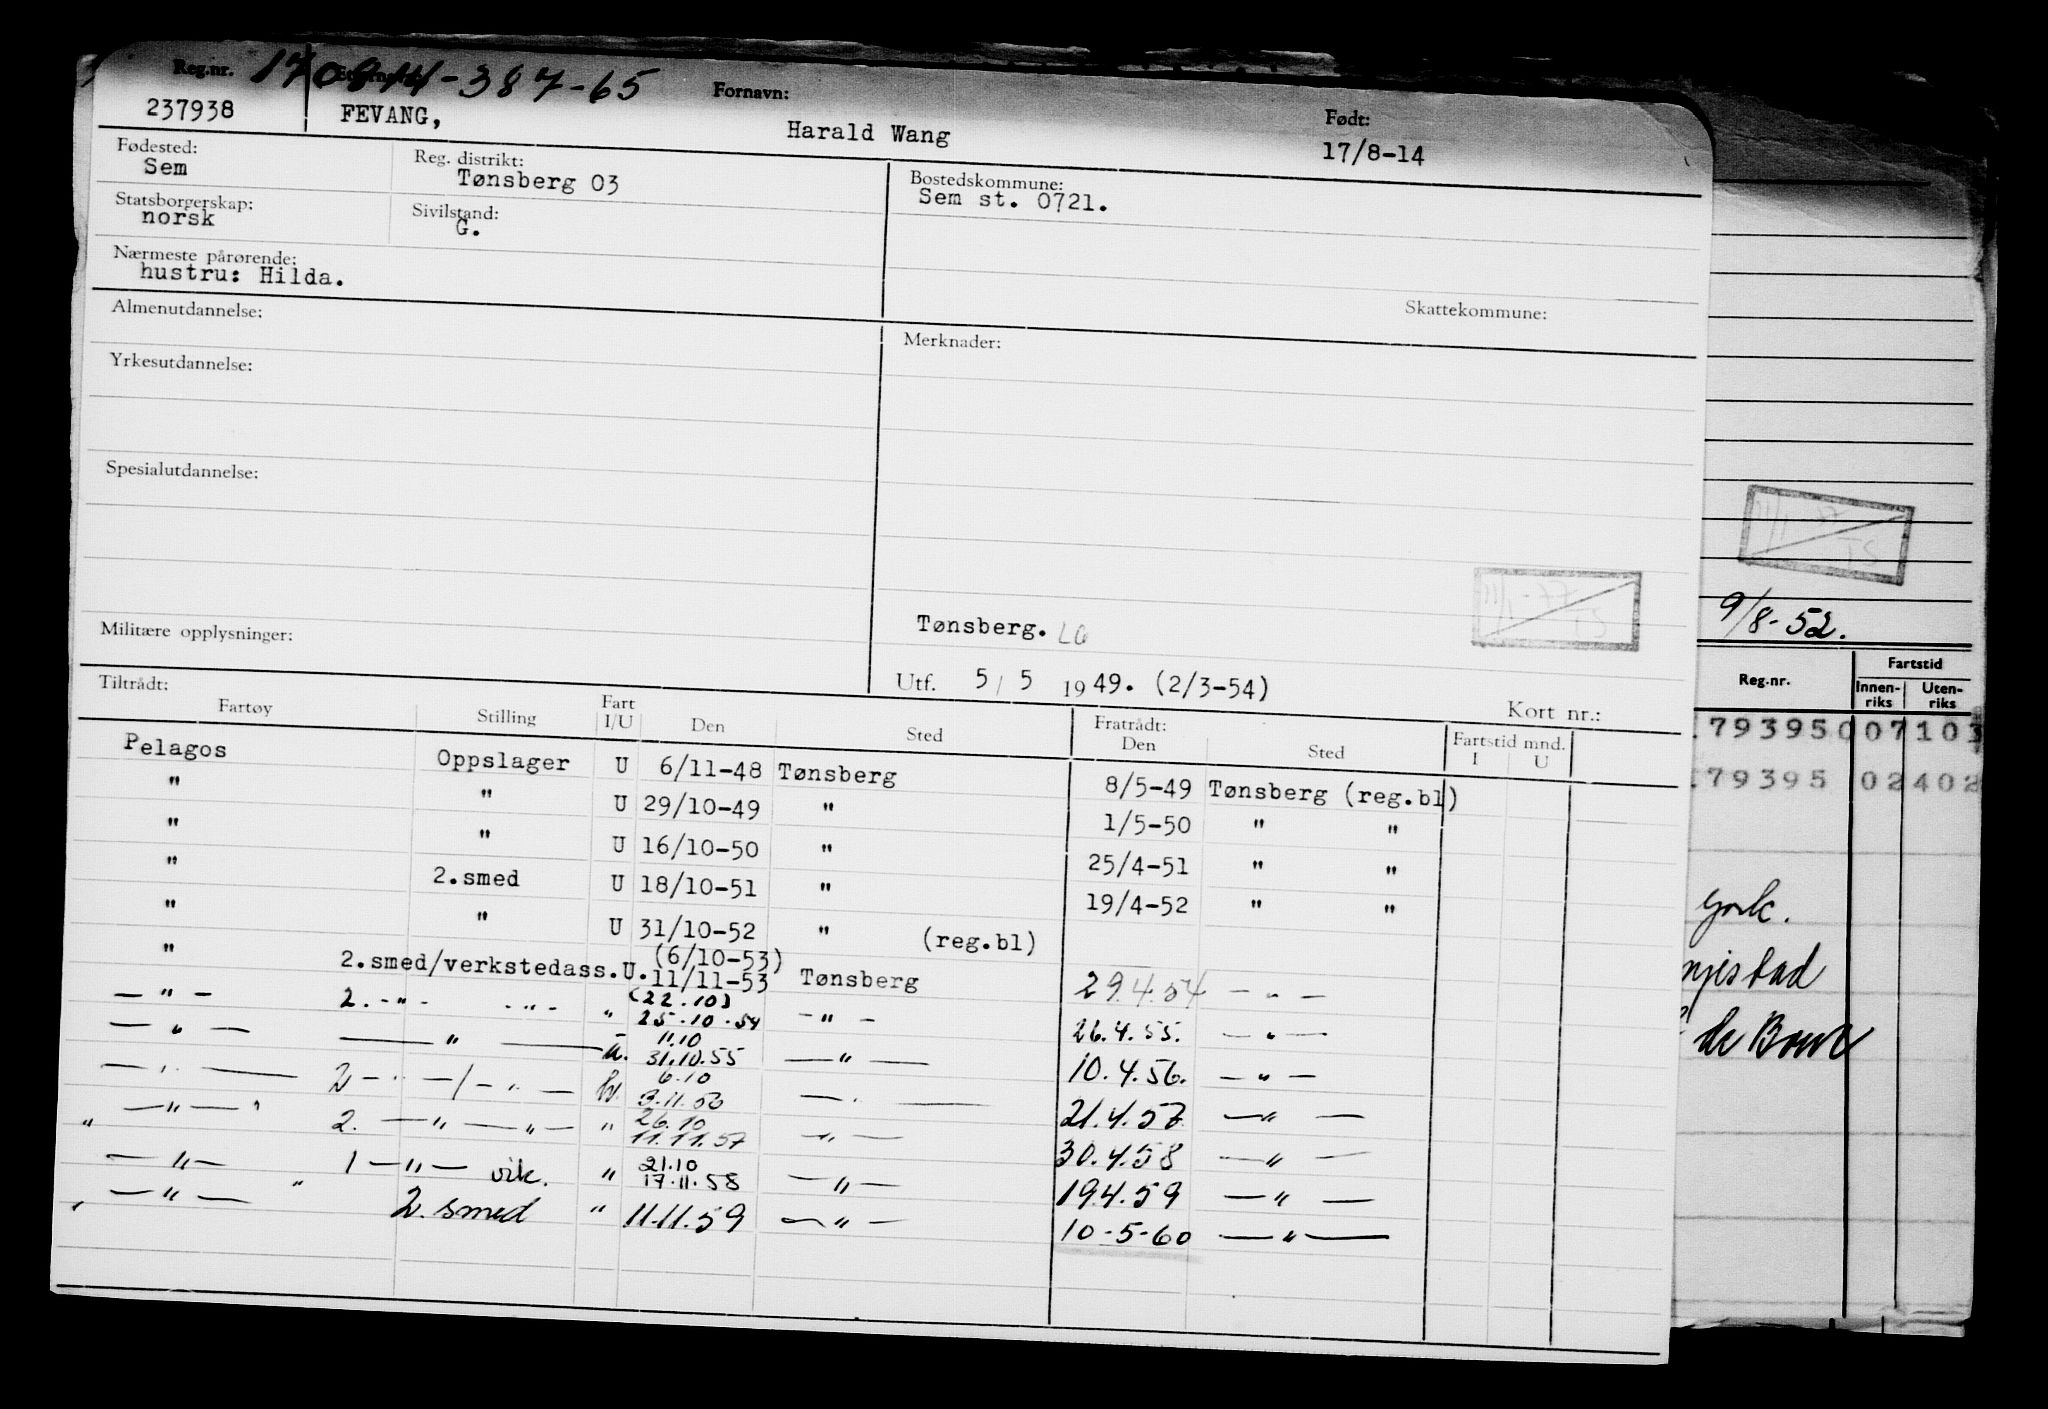 Reg.nr. 170814-387-65 Fornavn: Født:
237938 FEVANG, Harald Wang 17/8-14
Fødested: Reg. distrikt: Bostedskommune:
Sem Tønsberg 03 Sem st. 0721.
Statsborgerskap: Sivilstand:
norsk G.
Nærmeste pårørende:
hustru: Hilda.
Almenutdannelse: Skattekommune:
Merknader:
Yrkesutdannelse:
Spesialutdannelse:
Militære opplysninger: Tønsberg. LG
Utf. 5/5 1949. (2/3-54)
Tiltrådt: Kort nr.:
Fartøy Stilling Fart I/U Den Sted Fratrådt: Den Sted Fartstid mnd. I U
Pelagos Oppslager U 6/11-48 Tønsberg 8/5-49 Tønsberg (reg.bl)
" " U 29/10-49 " 1/5-50 " "
" " U 16/10-50 " 25/4-51 " "
" 2.smed U 18/10-51 " 19/4-52 " "
" " U 31/10-52 " (reg.bl)
(6/10-53)
" 2.smed/verkstedass.U. 11/11-53 Tønsberg 29.4.54 — " —
(22.10)
— " — 2. - " - - " - " 25.10.54 — " — 26.4.55. — " —
11.10
— " — — " — u. 31.10.55 — " — 10.4.56. — " —
6.10
— " — 2 — " — / — " — — " — — " —
26.10
— " — " 2. — " — " — " 11.11.57 — " — 30.4.58 — " —
21.10
" — " — 1 — " — vik. " 17.11.58 — " — 19.4.59 — " —
" — " — " 2. smed " 11.11.59 — " — 10-5-60 — " —
9/8-52.
Reg.nr. Fartstid
Innen-riks Uten-riks
793950 07 103
79395 02 402
york.